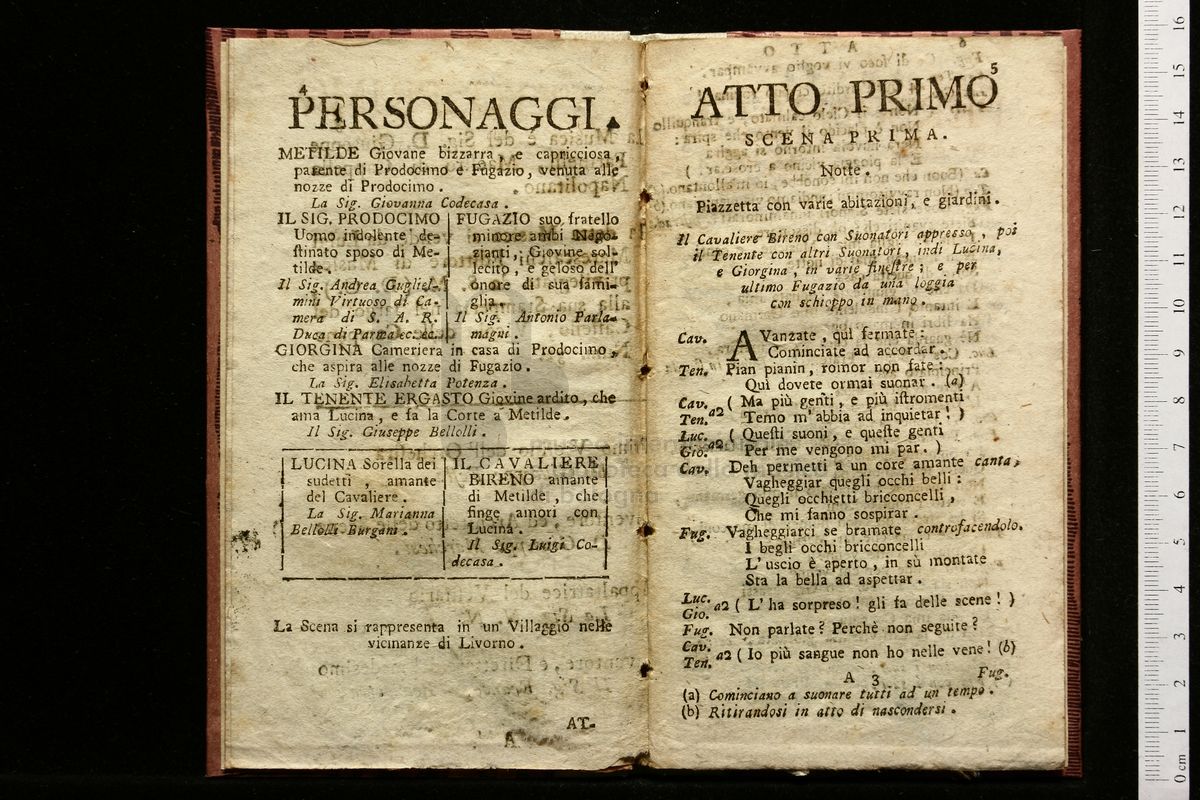 4
PERSONAGGI.
METILDE Giovane bizzarra, e capricciosa,
parente di Prodocimo e Fugazio, venuta alle
nozze di Prodocimo.
La Sig. Giovanna Codecasa.
IL SIG. PRODOCIMO
Uomo indolente de-
stinato sposo di Me-
tilde.
Il Sig. Andrea Gugliel-
mini Virtuoso di Ca-
mera di S. A. R.
Duca di Parma ec. ec.
FUGAZIO suo fratello
minore ambi Nego-
zianti, Giovine sol-
lecito, e geloso dell'
onore di sua fami-
glia.
Il Sig. Antonio Parla-
magni.
GIORGINA Cameriera in casa di Prodocimo,
che aspira alle nozze di Fugazio.
La Sig. Elisabetta Potenza.
IL TENENTE ERGASTO Giovine ardito, che
ama Lucina, e fa la Corte a Metilde.
Il Sig. Giuseppe Bellolli.
LUCINA Sorella dei
sudetti, amante
del Cavaliere.
La Sig. Marianna
Bellolli Burgani.
IL CAVALIERE
BIRENO amante
di Metilde, che
finge amori con
Lucina.
Il Sig. Luigi Co-
decasa.
La Scena si rappresenta in un Villaggio nelle
vicinanze di Livorno.
AT-
A
5
ATTO PRIMO
SCENA PRIMA.
Notte.
Piazzetta con varie abitazioni, e giardini.
Il Cavaliere Bireno con Suonatori appresso, poi
il Tenente con altri Suonatori, indi Lucina,
e Giorgina, in varie finestre; e per
ultimo Fugazio da una loggia
con schioppo in mano.
Cav. AVanzate, quì fermate:
Cominciate ad accordar.
Ten. Pian pianin, romor non fate:
Quì dovete ormai suonar. (a)
Cav. Ten. a2 ( Ma più genti, e più istromenti
Temo m'abbia ad inquietar! )
Luc. Gio. a2 ( Questi suoni, e queste genti
Per me vengono mi par. )
Cav. Deh permetti a un core amante canta,
Vagheggiar quegli occhi belli:
Quegli occhietti bricconcelli,
Che mi fanno sospirar.
Fug. Vagheggiarci se bramate controfacendolo.
I begli occhi bricconcelli
L'uscio è aperto, in sù montate
Sta la bella ad aspettar.
Luc. Gio. a2 ( L'ha sorpreso! gli fa delle scene! )
Fug. Non parlate? Perchè non seguite?
Cav. Ten. a2 ( Io più sangue non ho nelle vene! (b)
A 3 Fug.
(a) Cominciano a suonare tutti ad un tempo.
(b) Ritirandosi in atto di nascondersi.
0 cm 1 2 3 4 5 6 7 8 9 10 11 12 13 14 15 16